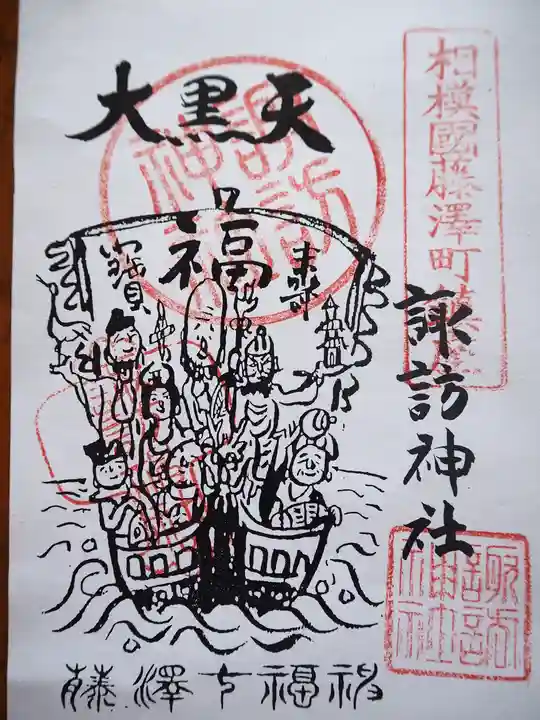 相模國藤澤町鎮座
諏訪神社
大黒天
福
寳
来
藤澤七福神
諏訪神社